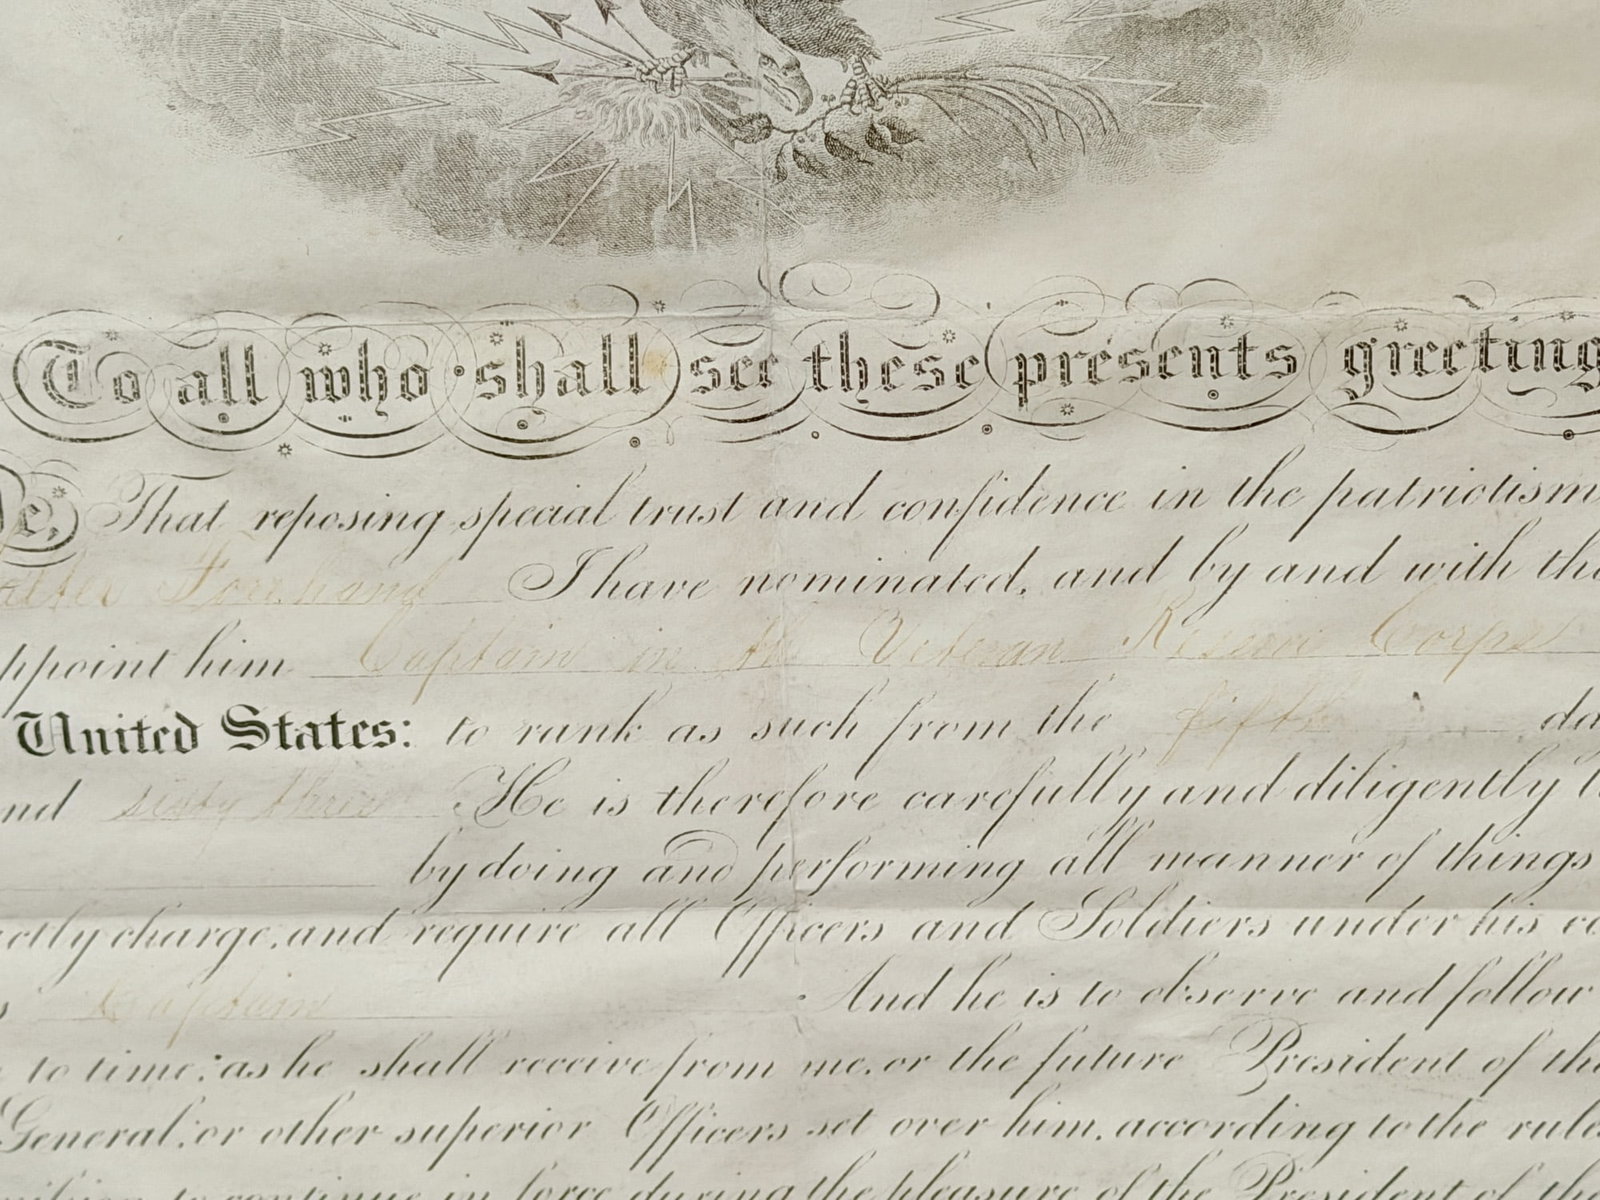 To all who shall see these presents greeting
That reposing special trust and confidence in the patriotism
I have nominated, and by and with the
him Captain in the Veteran Reserve Corps
United States: to rank as such from the fifth
sixty three He is therefore carefully and diligently
by doing and performing all manner of things
charge, and require all Officers and Soldiers under his
Captain And he is to observe and follow
to time: as he shall receive from me, or the future President of the
General: or other superior Officers set over him, according to the
to continue in force during the pleasure of the President of the